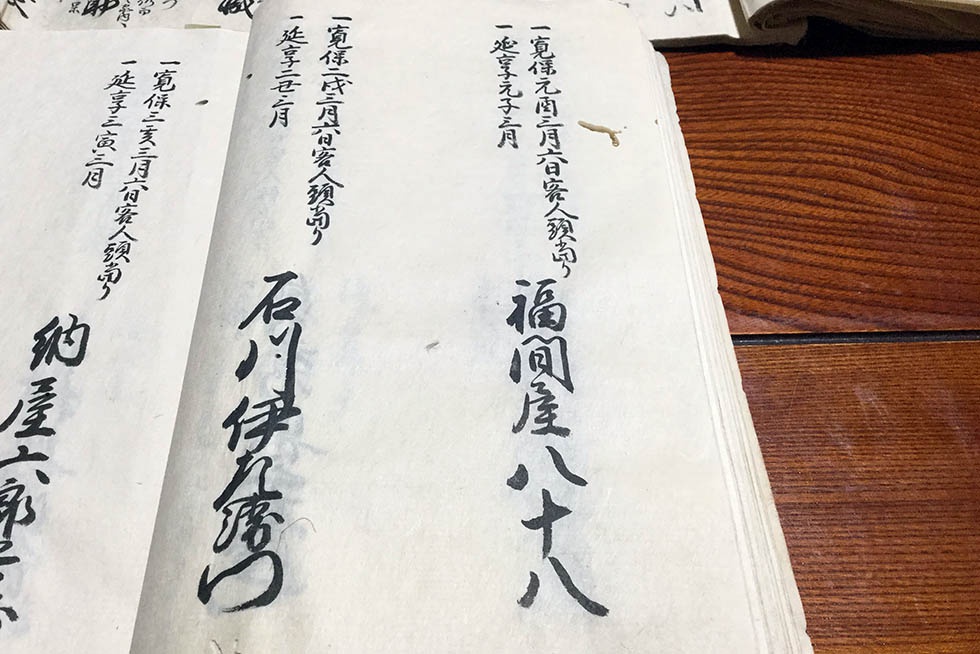 一寛保元酉三月六日客人頭当り
一延享元子三月
福間屋八十八
一寛保二戌三月六日客人頭当り
一延享二丑三月
石川伊左衛門
一寛保三亥三月六日客人頭当り
一延享三寅三月
納屋六郎